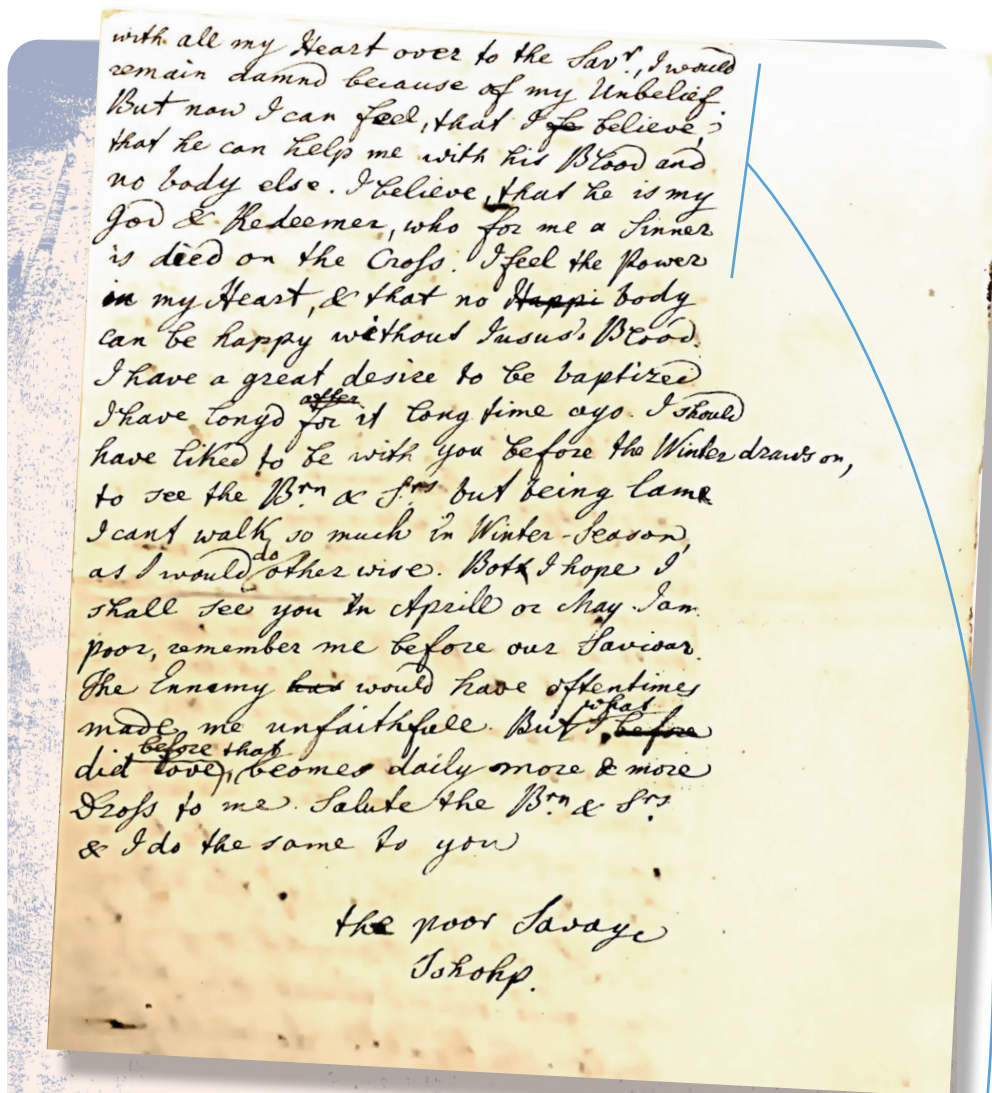 with all my Heart over to the Savr., I would
remain damnd because of my Unbelief.
But now I can feel, that I fe believe,
that he can help me with his Blood and
no body else. I believe, that he is my
God & Redeemer, who for me a Sinner
is died on the Cross. I feel the Power
in my Heart, & that no Happi body
can be happy without Jusus's Blood.
I have a great desire to be baptized
after
I have longd for it long time ago. I should
have liked to be with you before the Winter draws on,
to see the Brn & Srs but being lame
I cant walk so much in Winter-Season,
do
as I would otherwise. Bott I hope I
shall see you In Aprill or May. I am
poor, remember me before our Saviour.
The Ennemy has would have oftentimes
what
made me unfaithfull. But I before
before that
did love, becomes daily more & more
Dross to me. Salute the Brn & Srs.
& I do the same to you
the poor Savage
Tshohp.